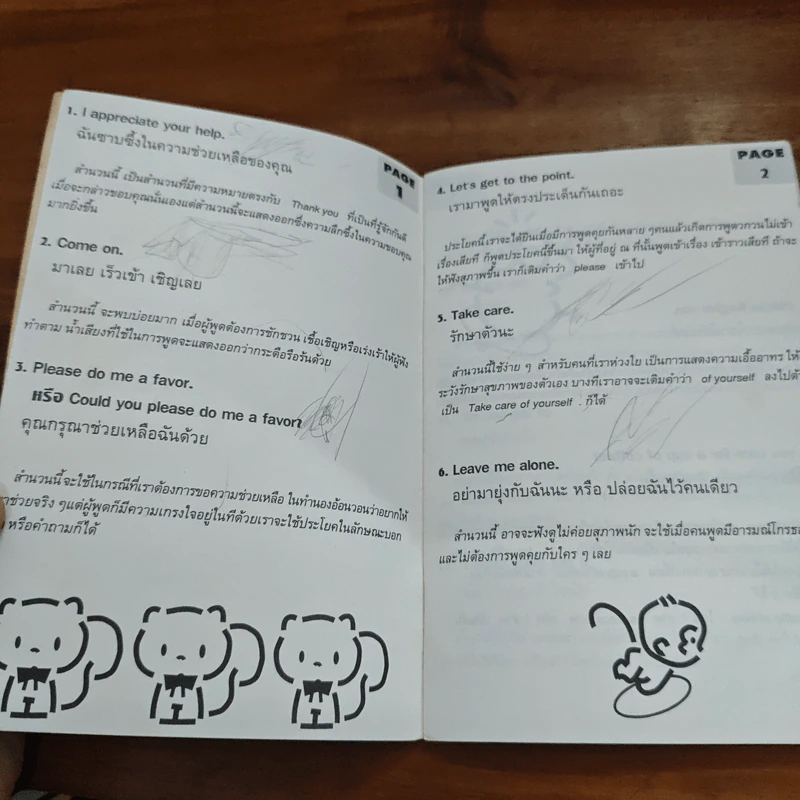 PAGE
1
1. I appreciate your help.
ฉันซาบซึ้งในความช่วยเหลือของคุณ
สำนวนนี้ เป็นสำนวนที่มีความหมายตรงกับ Thank you ที่เป็นที่รู้จักกันดี
เมื่อจะกล่าวขอบคุณนั่นเองแต่สำนวนนี้จะแสดงออกซึ่งความลึกซึ้งในความขอบคุณ
มากยิ่งขึ้น
2. Come on.
มาเลย เร็วเข้า เชิญเลย
สำนวนนี้ จะพบบ่อยมาก เมื่อผู้พูดต้องการชักชวน เชื้อเชิญหรือเร่งเร้าให้ผู้ฟัง
ทำตาม น้ำเสียงที่ใช้ในการพูดจะแสดงออกว่ากระตือรือร้นด้วย
3. Please do me a favor.
หรือ Could you please do me a favor
คุณกรุณาช่วยเหลือฉันด้วย
สำนวนนี้จะใช้ในกรณีที่เราต้องการขอความช่วยเหลือ ในทำนองอ้อนวอนว่าอยากให้
ช่วยจริง ๆแต่ผู้พูดก็มีความเกรงใจอยู่ในทีด้วยเราจะใช้ประโยคในลักษณะบอก
หรือคำถามก็ได้
PAGE
2
4. Let's get to the point.
เรามาพูดให้ตรงประเด็นกันเถอะ
ประโยคนี้เราจะได้ยินเมื่อมีการพูดคุยกันหลาย ๆคนแล้วเกิดการพูดวกวนไม่เข้า
เรื่องเสียที ก็พูดประโยคนี้ขึ้นมา ให้ผู้ที่อยู่ ณ ที่นั้นพูดเข้าเรื่อง เข้าราวเสียที ถ้าจะ
ให้ฟังสุภาพขึ้น เราก็เติมคำว่า please เข้าไป
5. Take care.
รักษาตัวนะ
สำนวนนี้ใช้ง่าย ๆ สำหรับคนที่เราห่วงใย เป็นการแสดงความเอื้ออาทร ให้
ระวังรักษาสุขภาพของตัวเอง บางทีเราอาจจะเติมคำว่า of yourself ลงไปด้
เป็น Take care of yourself . ก็ได้
6. Leave me alone.
อย่ามายุ่งกับฉันนะ หรือ ปล่อยฉันไว้คนเดียว
สำนวนนี้ อาจจะฟังดูไม่ค่อยสุภาพนัก จะใช้เมื่อคนพูดมีอารมณ์โกรธ
และไม่ต้องการพูดคุยกับใคร ๆ เลย